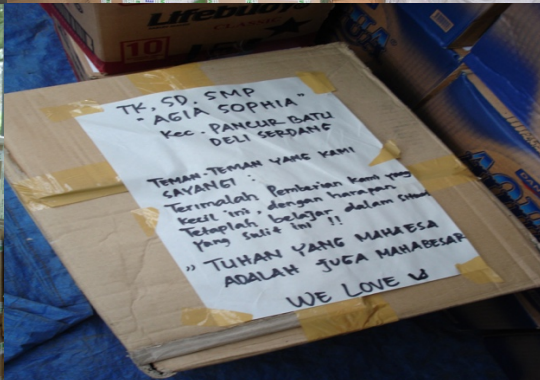 Lifebuoy
CLASSIC
10
TK, SD, SMP
"AGIA SOPHIA"
Kec. PANCUR BATU
DELI SERDANG
TEMAN-TEMAN YANG KAMI
SAYANGI :
Terimalah Pemberian Kami yang
kecil ini, dengan harapan
Tetaplah belajar dalam
yang sulit ini !!
" TUHAN YANG MAHAESA
ADALAH JUGA MAHABESAR
WE LOVE U